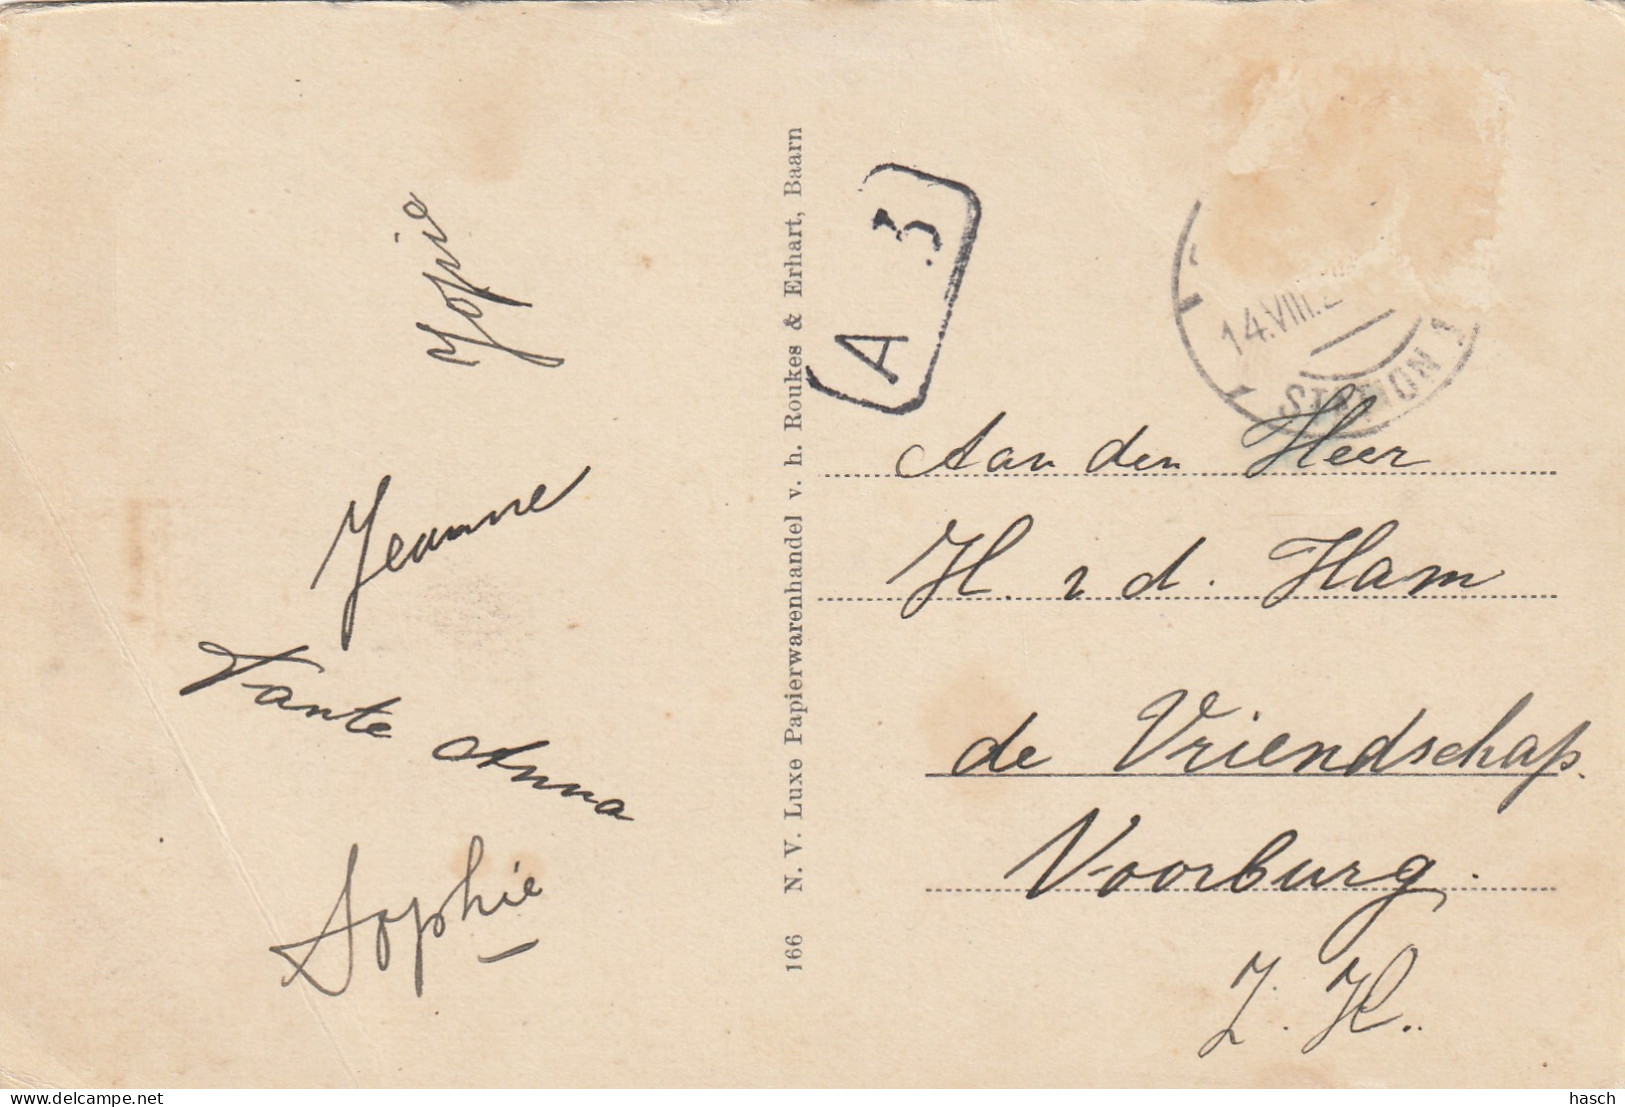 Jopie
Jeanne
Tante Anna
Sophie
166 N. V. Luxe Papierwarenhandel v. h. Roukes & Erhart, Baarn
A 3
14.VIII.2
STATION 1
Aan den Heer
H. v d. Ham
de Vriendschap.
Voorburg.
Z. H.
delcampe.net
hasch